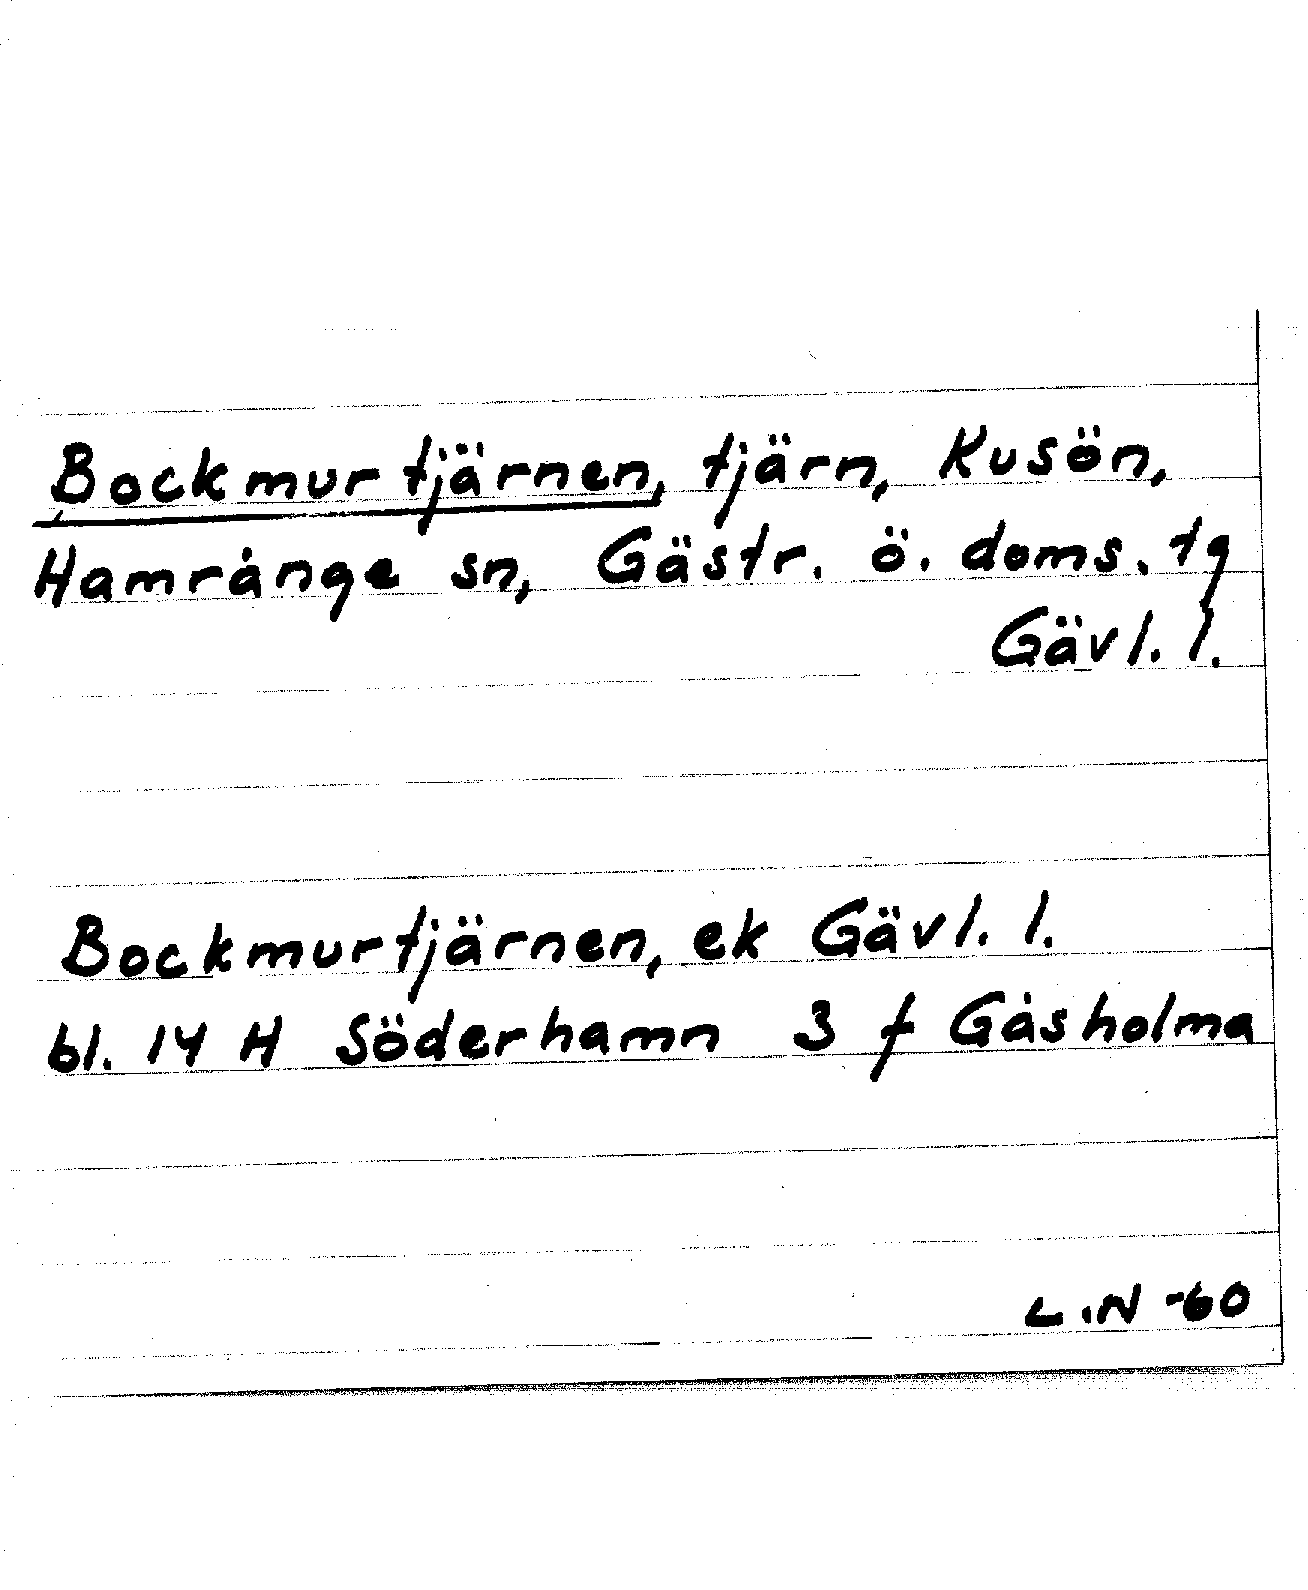 Bockmurtjärnen, tjärn, Kusön,
Hamrånge sn, Gästr. ö. doms. tg
Gävl. l.
Bockmurtjärnen, ek Gävl. l.
bl. 14 H Söderhamn 3 f Gåsholma
L.N -60